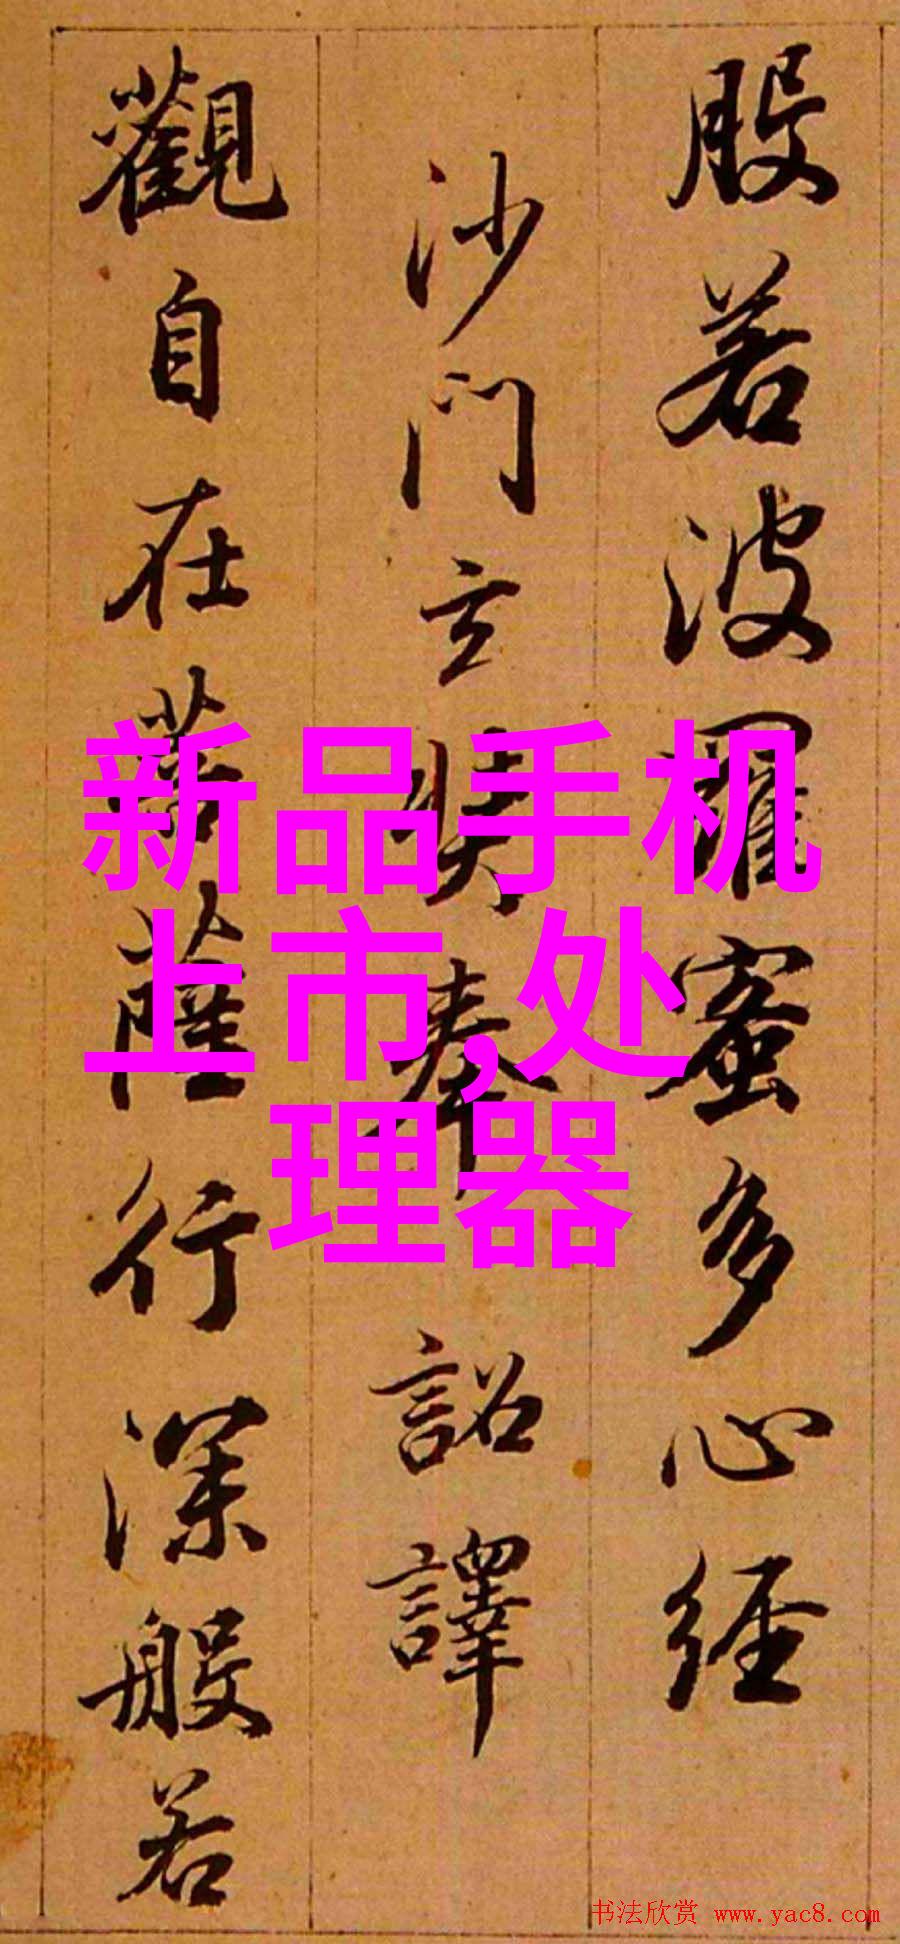 般若波羅蜜多心經
沙門玄奘奉詔譯
觀自在菩薩行深般若
新品手机
上市,处
理器
书法欣赏 www.yac8.com